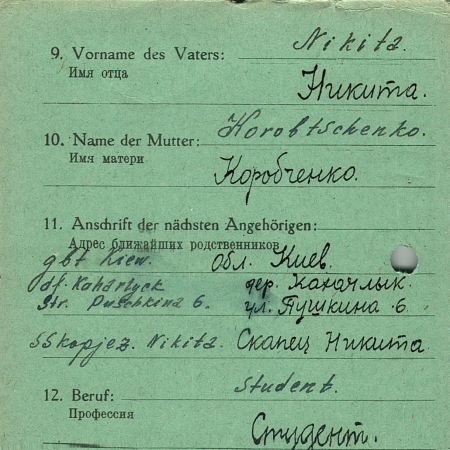 Nikita.
9. Vorname des Vaters:
Имя отца
Никита.
Korobtschenko.
10. Name der Mutter:
Имя матери
Коробченко.
11. Anschrift der nächsten Angehörigen:
Адрес ближайших родственников
gbt Kiew. обл. Киев.
df. Kaharlyck дер. Кагачлык
Str. Puschkina 6. ул. Пушкина 6.
Nikita. Скапец Никита
Student.
12. Beruf:
Профессия
Студент.